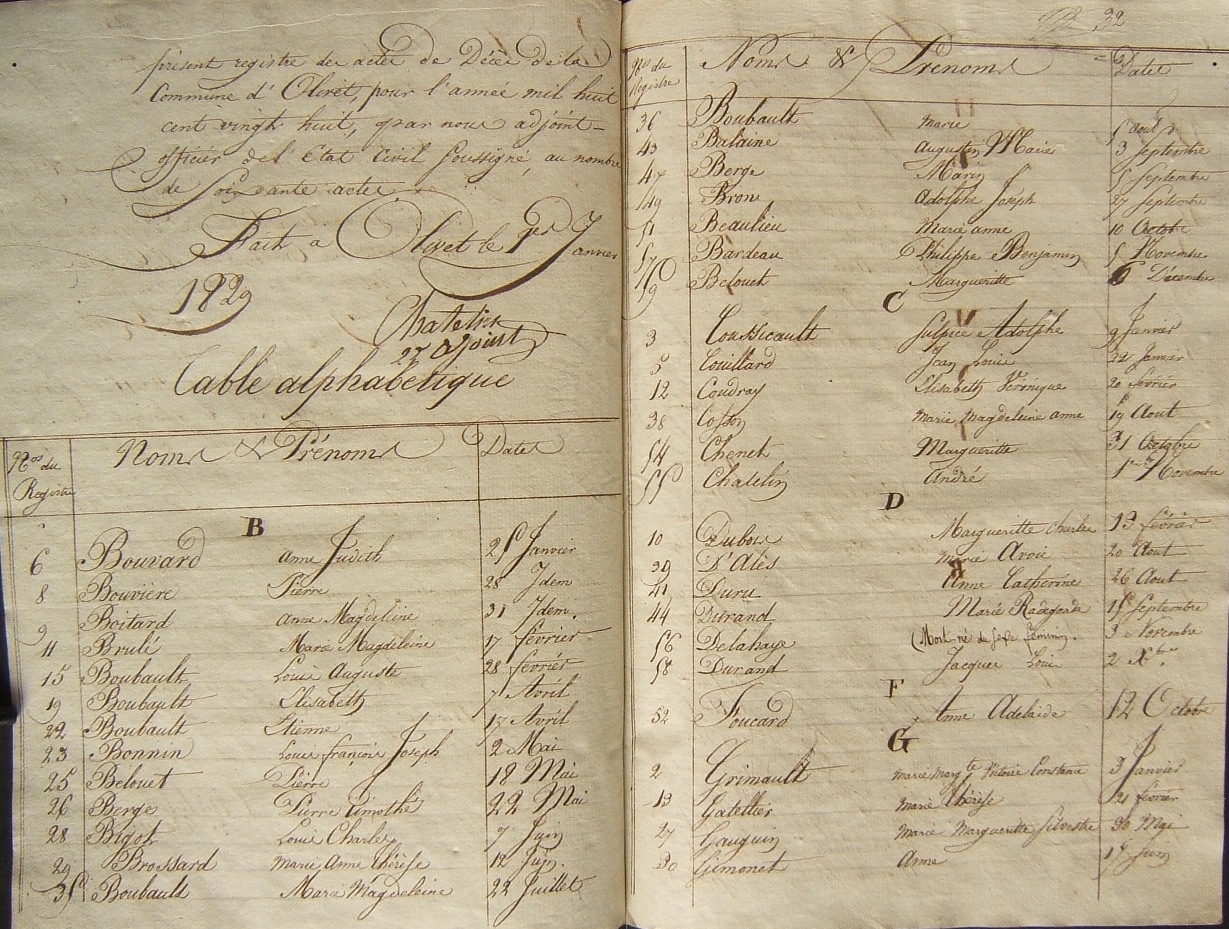 présent registre des actes de Décès de la
Commune d'Olivet, pour l'année mil huit
cent vingt huit, par nous adjoint
officier del Etat Civil soussigné, au nombre
de Soixante actes
Fait à Olivet le 1er Janvier
1829
Chatelin
adjoint
Table alphabétique
Nos du Registre Noms & Prénoms Dates
B
6 Bouvard Anne Judith 25 Janvier
8 Bouvière Pierre 28 Idem
9 Boitard Anne Magdeleine 31 Idem
11 Brulé Marie Magdeleine 17 février
15 Boubault Louis Auguste 28 fevrier
19 Boubault Elisabeth 7 Avril
22 Boubault Etienne 17 Avril
23 Bonnin Louis françois Joseph 2 Mai
25 Belouet Pierre 18 Mai
26 Berge Pierre Timothé 22 Mai
28 Bigot Louis Charles 7 Juin
29 Brossard Marie Anne thérèse 12 Juin.
35 Boubault Marie Magdeleine 22 Juillet
32
Nos du Registre Noms & Prénoms Dates
36 Boubault Marie 5 Aout
43 Balaine Augustin Marie 3 Septembre
Berge Marin 5 Septembre
49 Bron Adolphe Joseph 27 Septembre
51 Beaulieu Marie anne 10 Octobre
57 Bardeau Philippe Benjamin 5 Novembre
59 Belouet Margueritte 6 Décembre
C
3 Coussicault Sulpice Adolphe 9 Janvier
5 Couillard Jean Louis 22 Janvier
12 Coudray Elisabeth Véronique 20 février
38 Cosson Marie Magdeleine anne 19 Aout
54 Chenet Margueritte 31 Octobre
55 Chatelin André 1er Novembre
D
10 Dubois Margueritte Charles 13 février
39 D'Alès Marie Avoie 20 Aout
41 Duru Anne Catherine 26 Aout
44 Durand Marie Radegonde 15 Septembre
56 Delahaye (Mort né du sexe féminin. 3 Novembre
58 Durand Jacques Louis 2 Xbre.
F
52 Foucard Anne Adelaide 12 Octobre
G
2 Grimault Marie Margte Victoire Constance 3 Janvier
13 Gatellier Marie thérèse 21 fevrier
27 Gauguin Marie Margueritte Silvestre 30 Mai
30 Simonet Anne 15 Juin